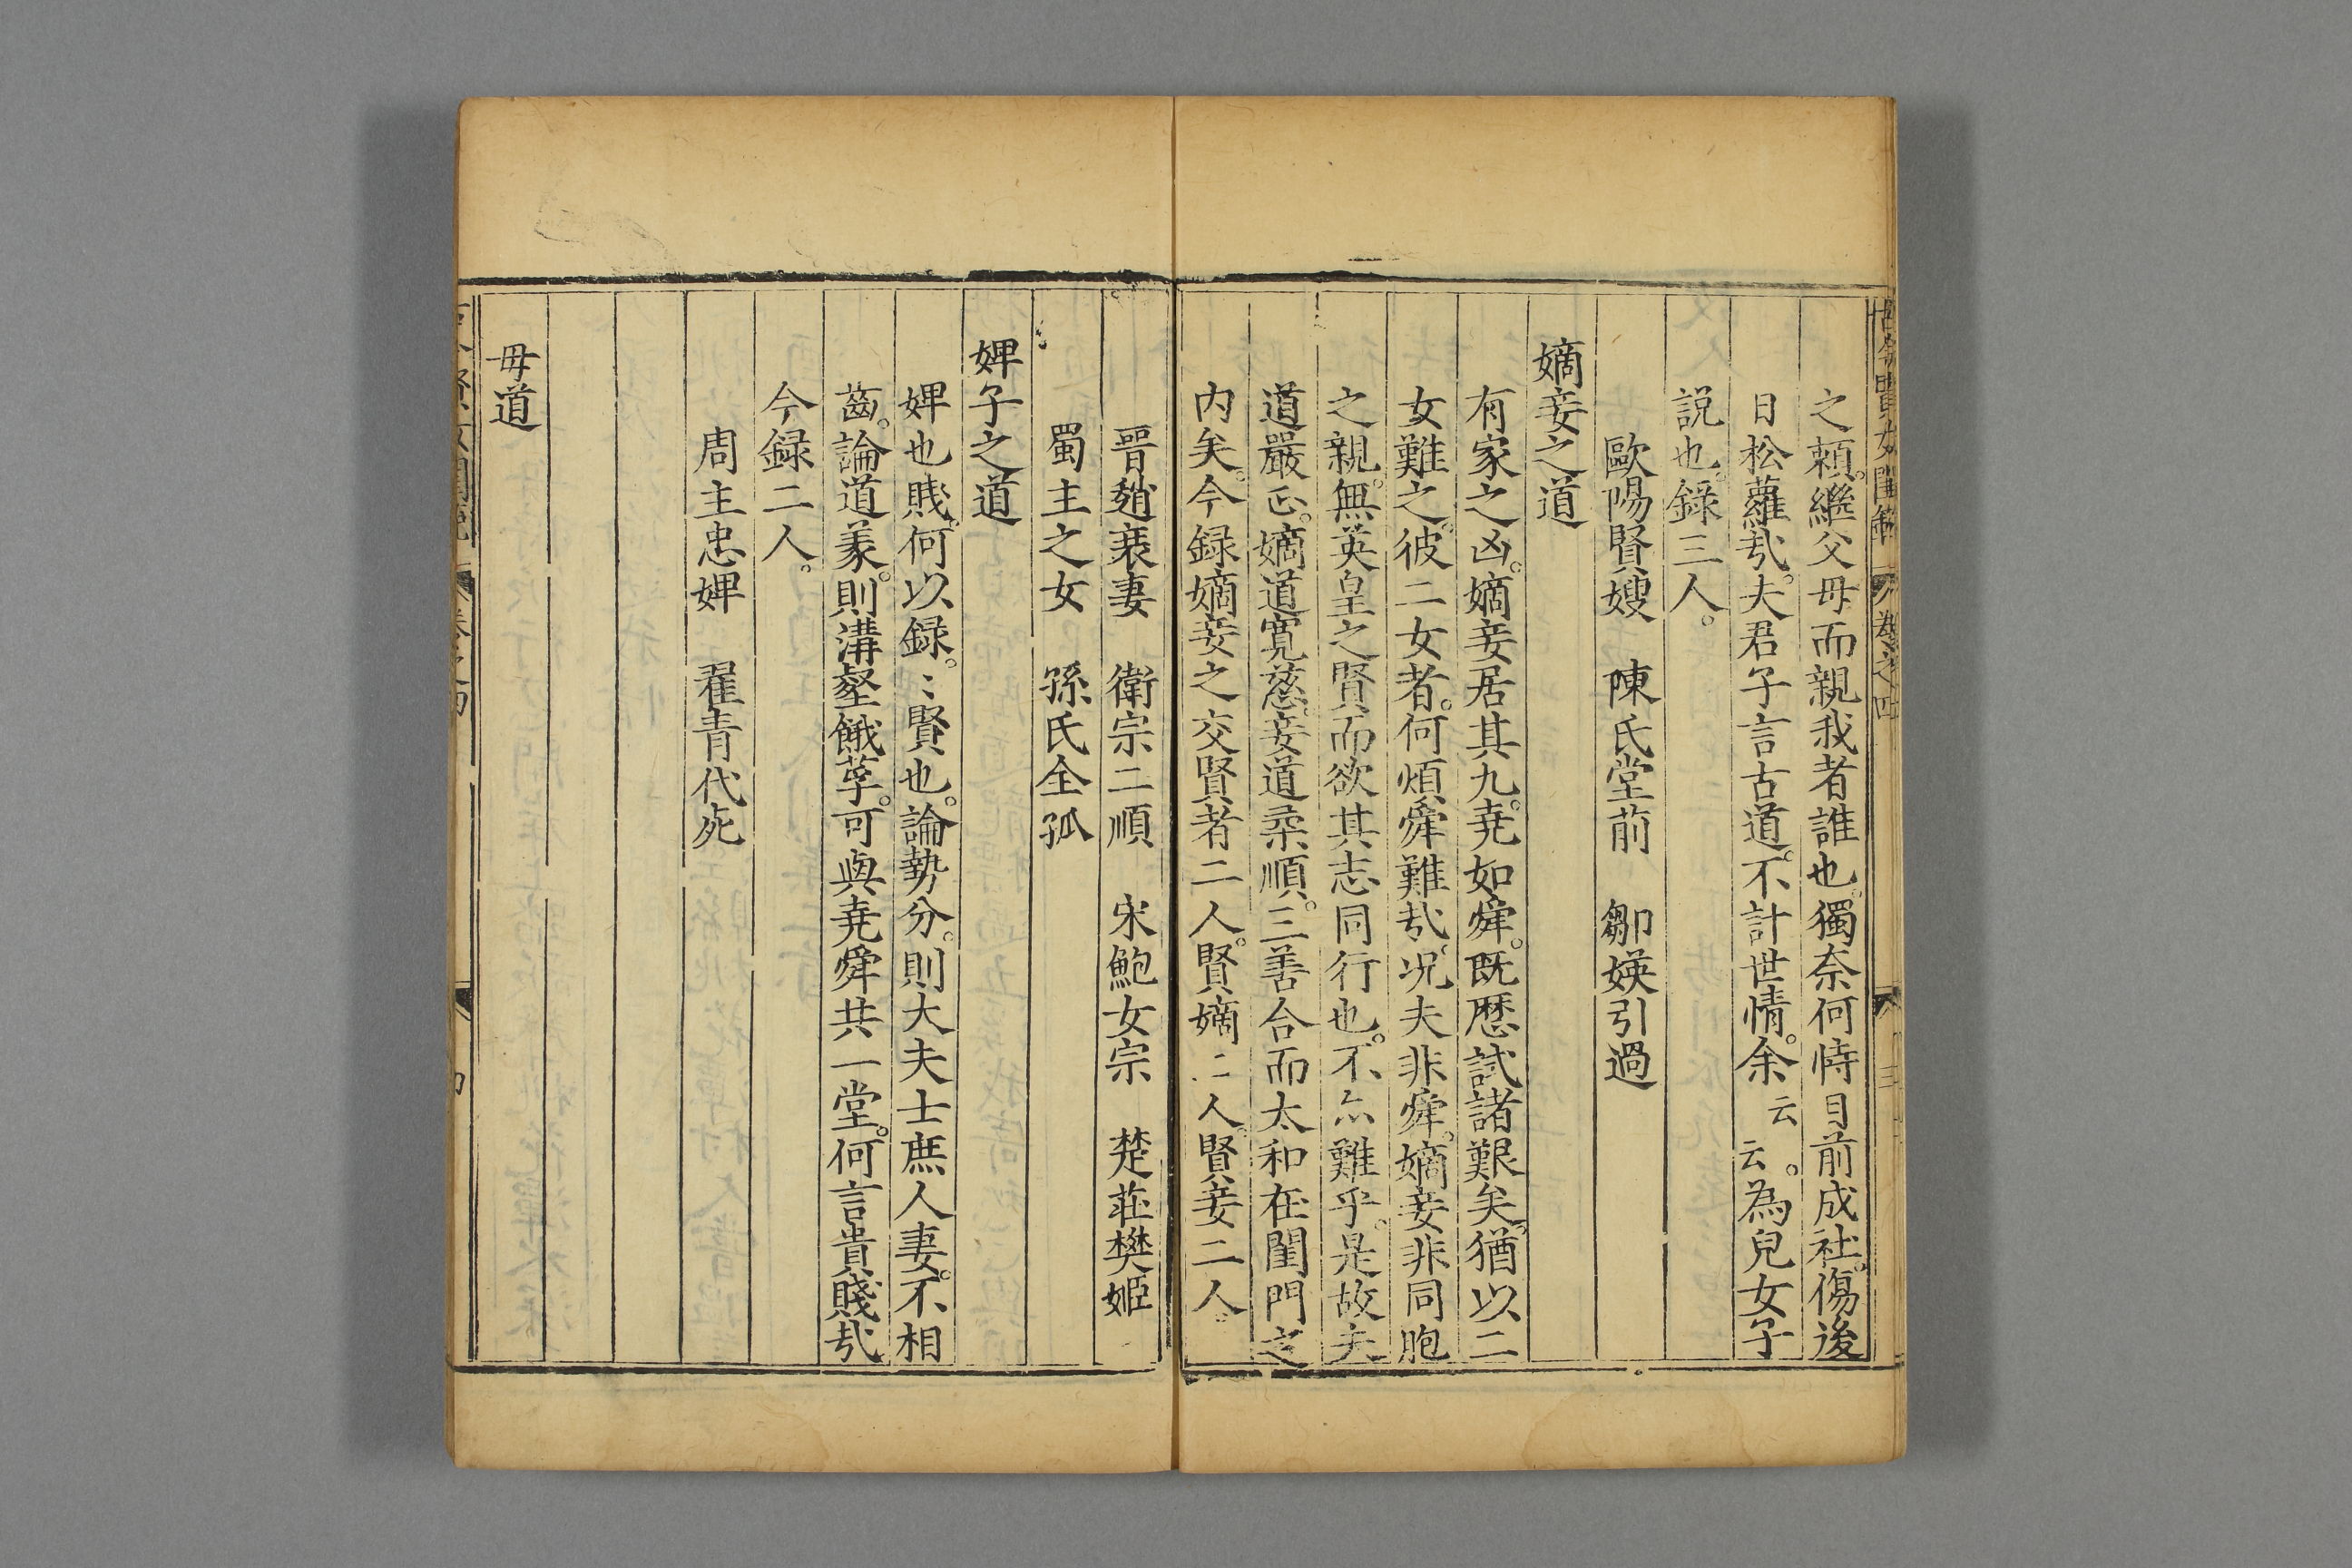 之頼。繼父母而親我者誰也。獨奈何恃目前成社。傷後
日松蘿㢤。夫君子言古道。不計世情。余云云。為兒女子
説也。錄三人。
歐陽賢嫂　陳氏堂前　鄒媖引過
嫡妾之道
有家之凶。嫡妾居其九。堯如舜。既歷試諸艱矣。猶以二
女難之。彼二女者。何煩舜難㢤。况夫非舜。嫡妾非同胞
之親。無英皇之賢而欲其志同行也。不亦難乎。是故夫
道嚴正。嫡道寬慈。妾道柔順。三善合而太和在閨門之
内矣。今録嫡妾之交賢者二人。賢嫡二人。賢妾二人。
晉趙衰妻　衛宗二順　宋鮑女宗　楚莊樊姬
蜀主之女　孫氏全孤
婢子之道
婢也賤。何以録。：賢也。論勢分。則大夫士庶人妻。不相
齒。論道義。則溝壑餓莩。可與堯舜共一堂。何言貴賤㢤
今録二人。
周主忠婢　翟青代死
母道